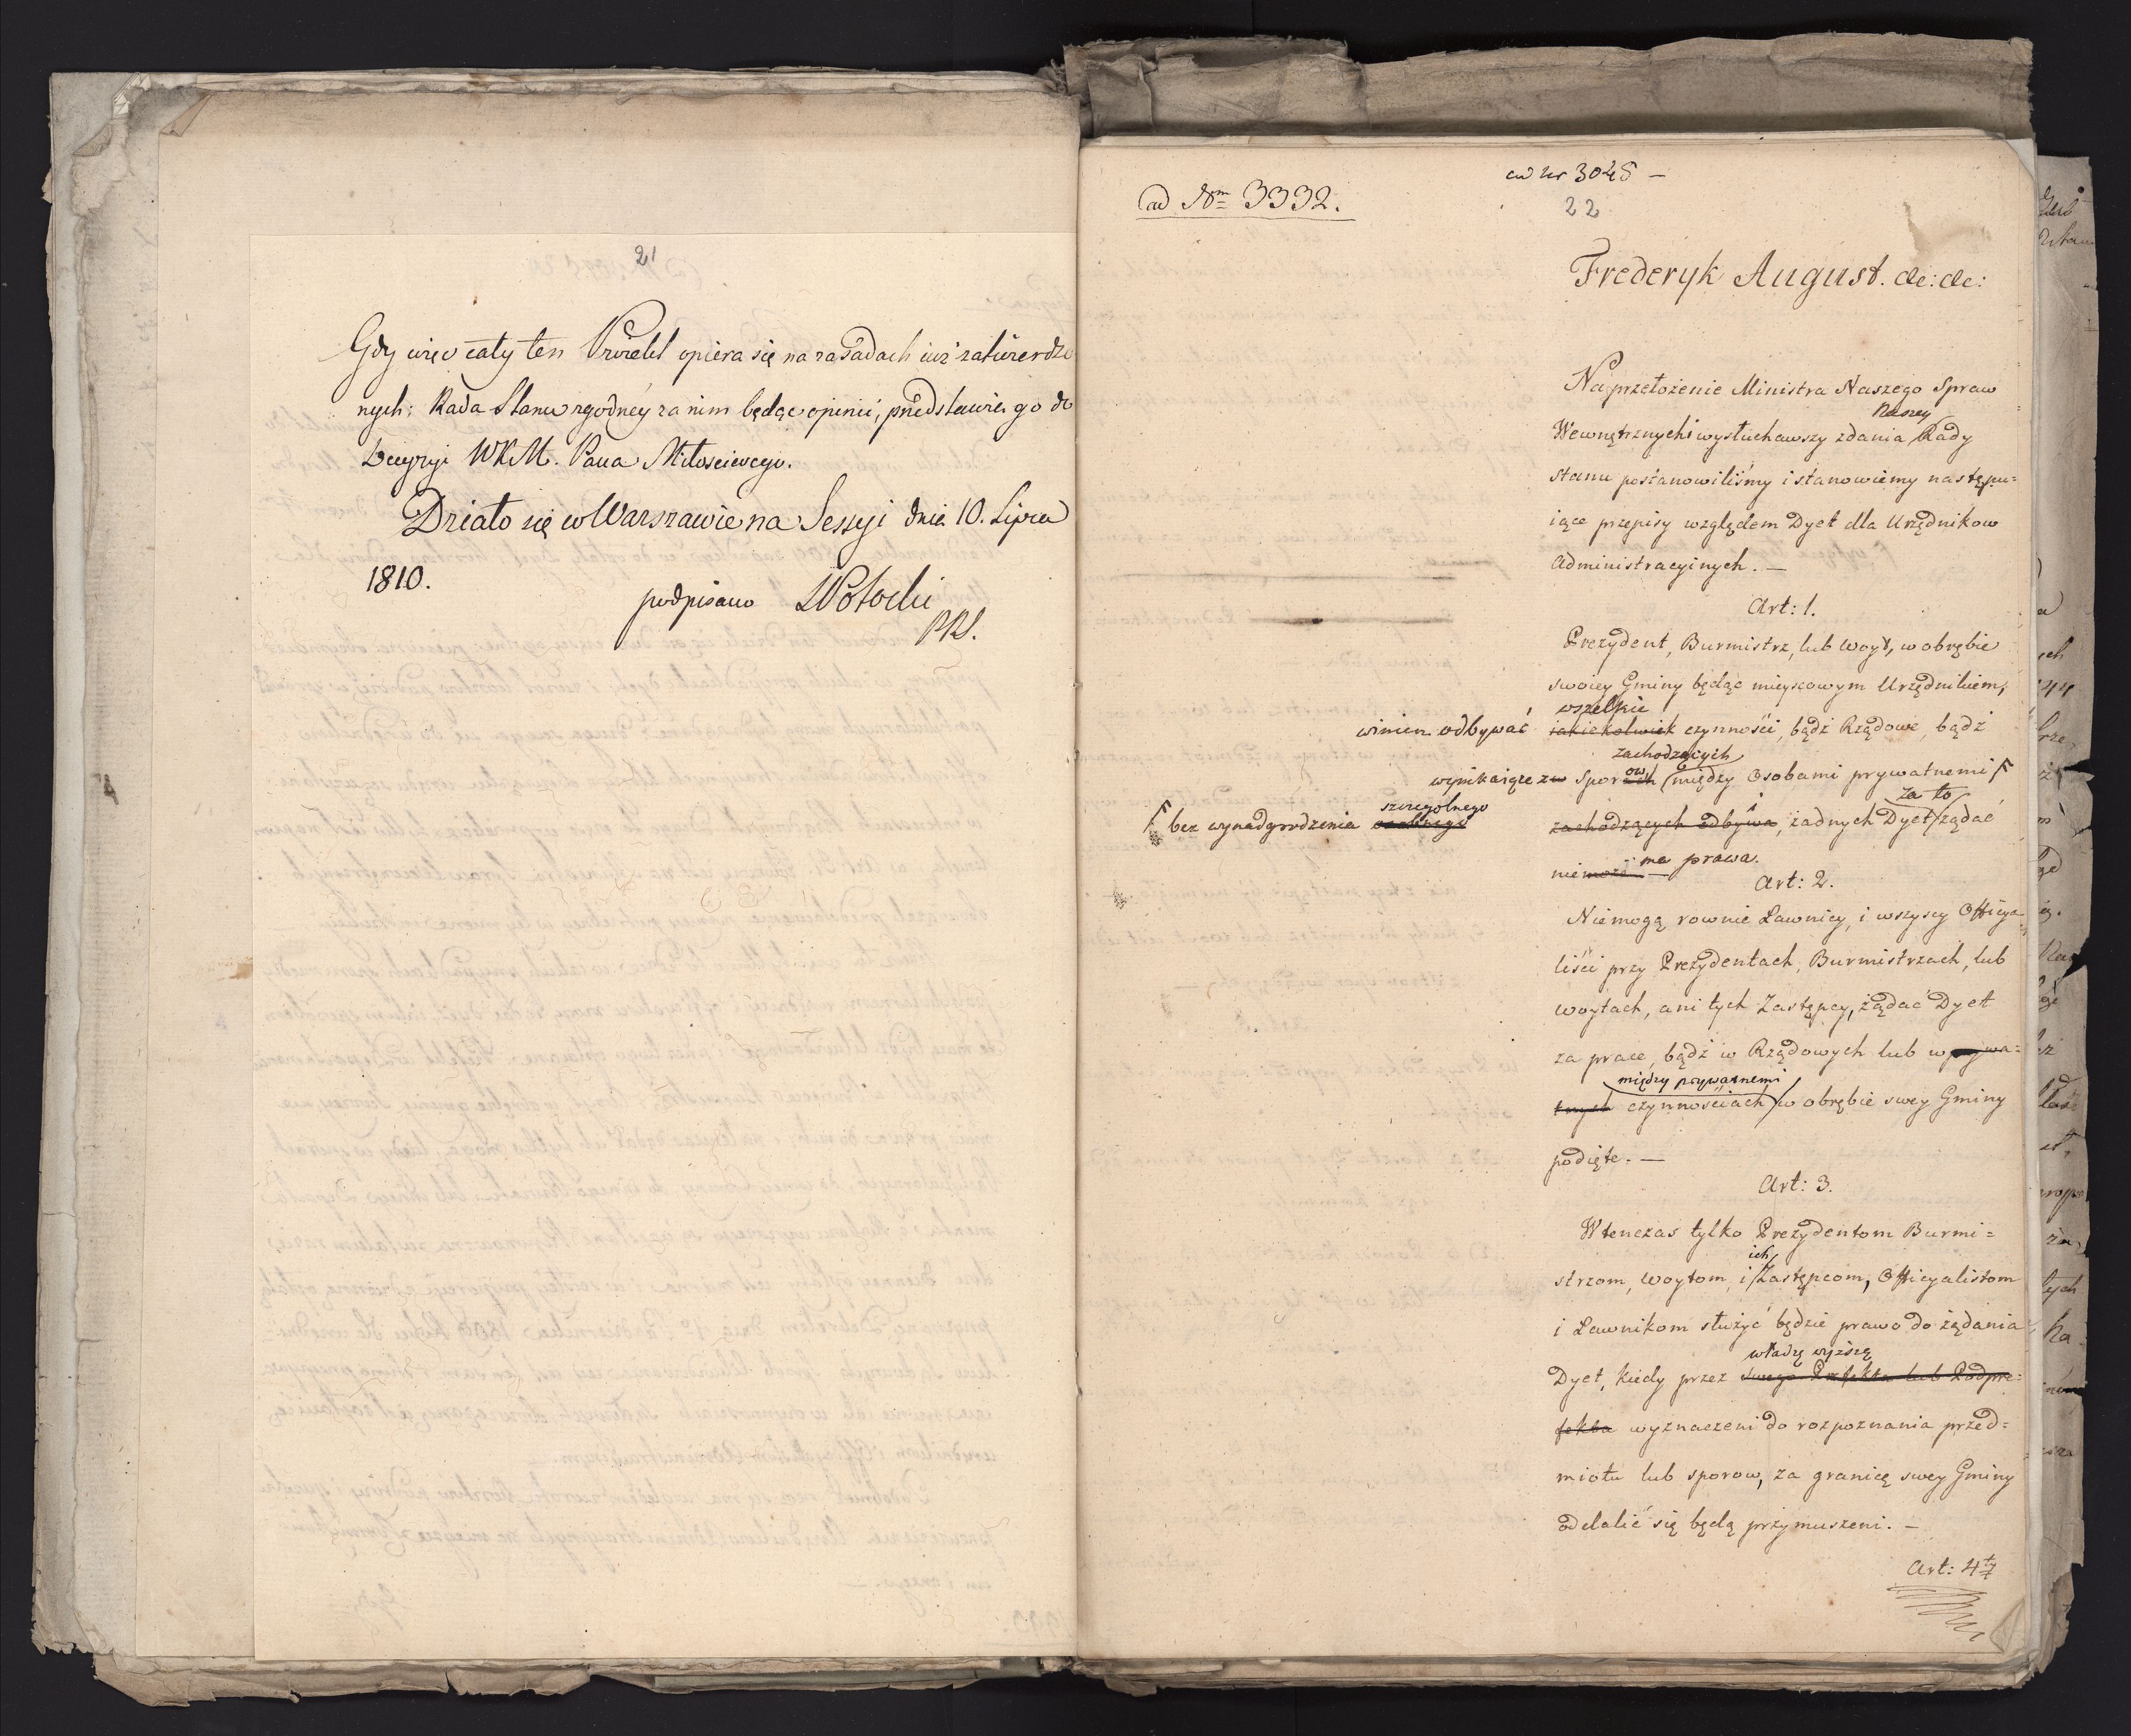 21
Gdy więc cały ten Proiekt opiera się na zasadach iuż zatwierdzo
nych; Rada Stanu zgodney za nim będąc opinii, przedstawia go do
Decyzyi WKM. Pana Miłościwego.
Działo się w Warszawie na Sessyi dnia 10. Lipca
1810.
podpisano Potocki
PRS.
ad Nr 3045 —
ad Nm 3332.
22
Frederyk August. etc: etc:
Na przełożenie Ministra Naszego Spraw
Naszey
Wewnętrznych i wysłuchawszy zdania Rady
Stanu postanowiliśmy i stanowiemy następu=
iące przepisy względem Dyet dla Urzędnikow
Administracyinych. —
Art: 1.
Prezydent, Burmistrz, lub Woyt, w obrębie
swoiey Gminy będąc mieyscowym Urzędnikiem,
wszelkie
winien odbywać iakiekolwiek czynności, bądź Rządowe, bądź
zachodzących
wynikaiące z w sporach ow między Osobami prywatnemi
szczegolnego za to
bez wynadgrodzenia osobnego zachodzących odbywa, i żadnych Dyet żądać
niemoże ma prawa.
Art: 2.
Niemogą rownie Ławnicy, i wszyscy Officya=
liści przy Prezydentach, Burmistrzach, lub
Woytach, ani tych Zastępcy, żądać Dyet
za prace, bądź w Rządowych lub w prywa=
między prywatnemi
tnych czynnościach w obrębie swey Gminy
podięte. —
Art: 3.
Wtenczas tylko Prezydentom Burmi=
ich
strzom, Woytom, i Zastępcom, Officyalistom
i Ławnikom służyć będzie prawo do żądania
władzę wyższą
Dyet, kiedy przez swego Prefekta lub Podpre=
fekta wyznaczeni do rozpoznania przed=
miotu lub sporow, za granicę swey Gminy
oddalić się będą przymuszeni. —
Art: 4ty